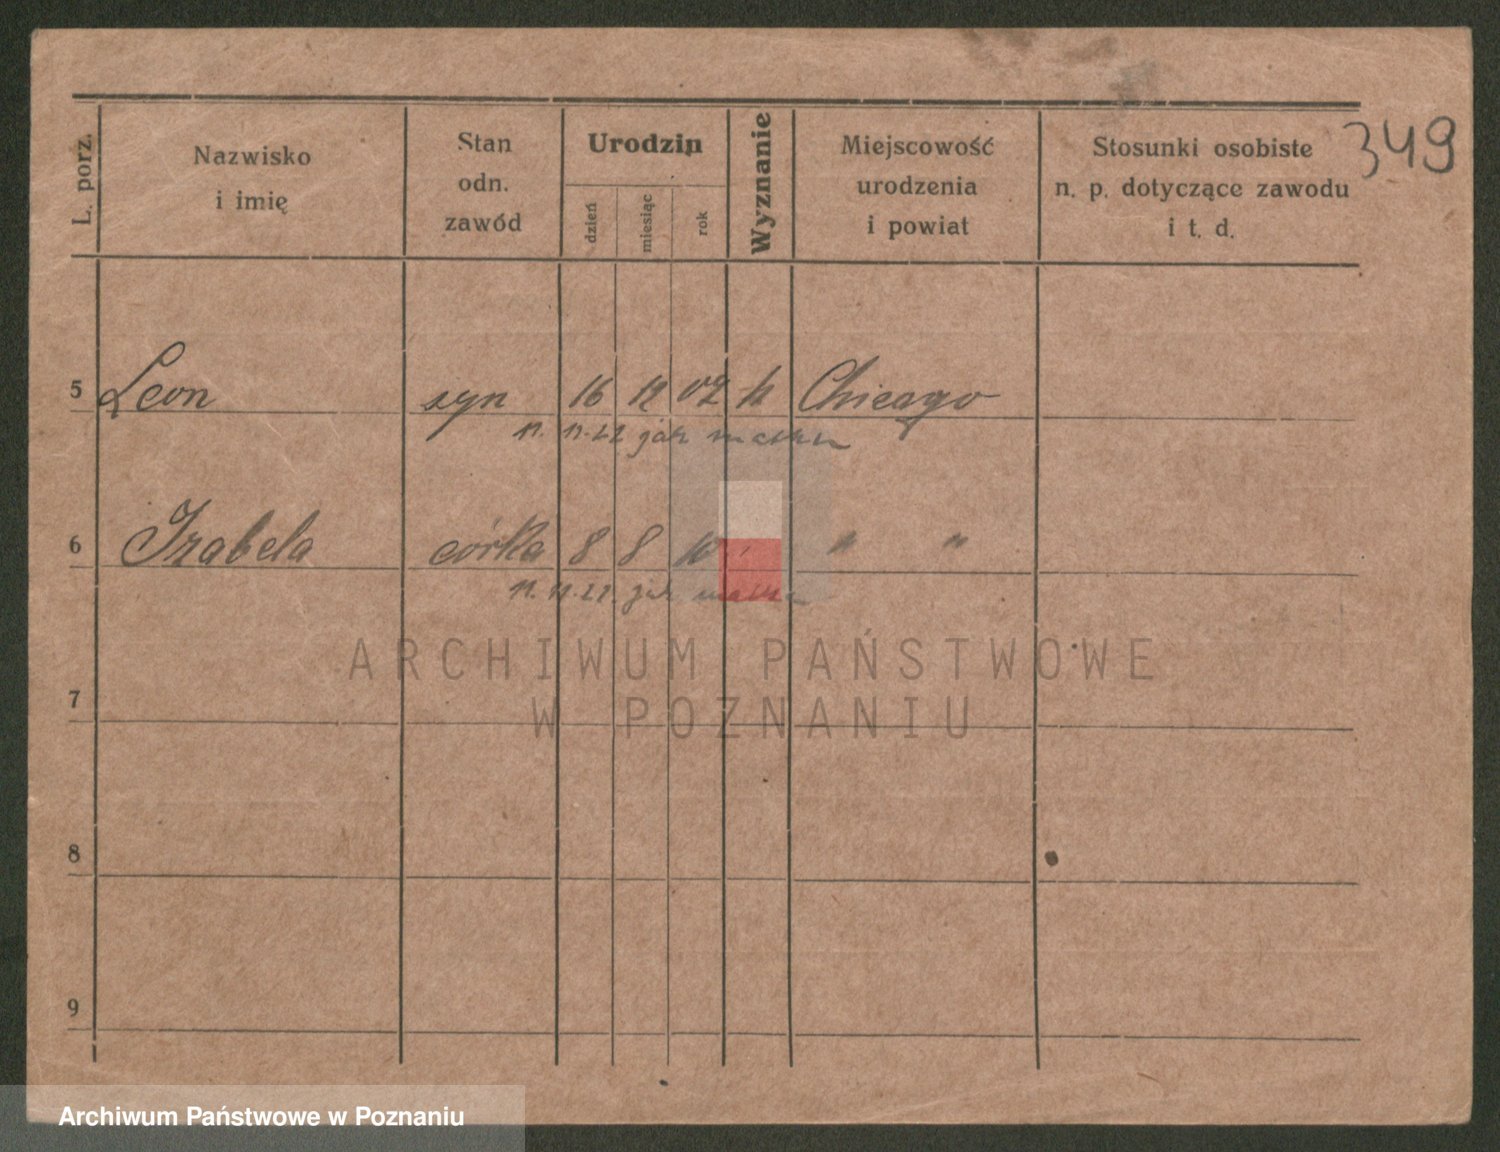 349
L. porz.
Nazwisko
i imię
Stan
odn.
zawód
Urodzin
dzień
miesiąc
rok
Wyznanie
Miejscowość
urodzenia
i powiat
Stosunki osobiste
n. p. dotyczące zawodu
i t. d.
5 Leon syn 16 12 02 k Chicago
11. 11. 22 jak matka
6 Izabela córka 8 8 10 " " "
11. 11. 22. jak matka
ARCHIWUM PAŃSTWOWE
W POZNANIU
7
8
9
Archiwum Państwowe w Poznaniu